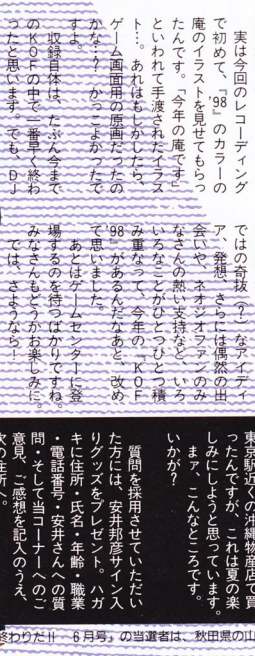 実は今回のレコーディング
で初めて、『98』のカラーの
庵のイラストを見せてもらっ
たんです。「今年の庵です」
といわれて手渡されたイラス
ト…。あれはもしかしたら、
ゲーム画面用の原画だったの
かな…？かっこよかったで
すよ。
収録自体は、たぶん今まで
のKOFの中で一番早く終わ
ったと思います。でも、DJ
ではの奇抜（？）なアイディ
ア、発想、さらには偶然の出
会いや、ネオジオファンのみ
なさんの熱い支持など、いろ
いろなことがひとつひとつ積
み重なって、今年の『KOF
'98』があるんだなあと、改め
て思いました。
あとはゲームセンターに登
場するのを待つばかりですね。
みなさんもどうかお楽しみに。
では、さようなら！
東京駅近くの沖縄物産店で買
ったんですが、これは夏の楽
しみにしようと思っています。
まァ、こんなところです。
いかが？
質問を採用させていただい
た方には、安井邦彦サイン入
りグッズをプレゼント。ハガ
キに住所・氏名・年齢・職業
・電話番号・安井さんへの質
問・そして当コーナーへのご
意見、ご感想を記入のうえ、
次の住所へ。
終わりだ!! 6月号』の当選者は、秋田県の山